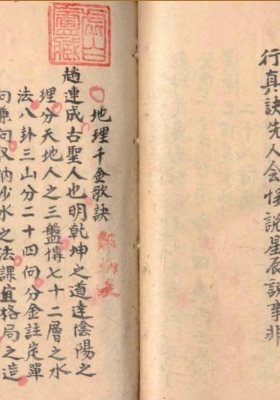 行真訣法人会怪說星辰說事非
地理千金歌訣
趙連成古聖人也明乾坤之道達陰陽之
理分天地人之三盤傳七十二層之水
法八卦三山分二十四向分金註定單
向兼向又納沙水之法課宜格局之造